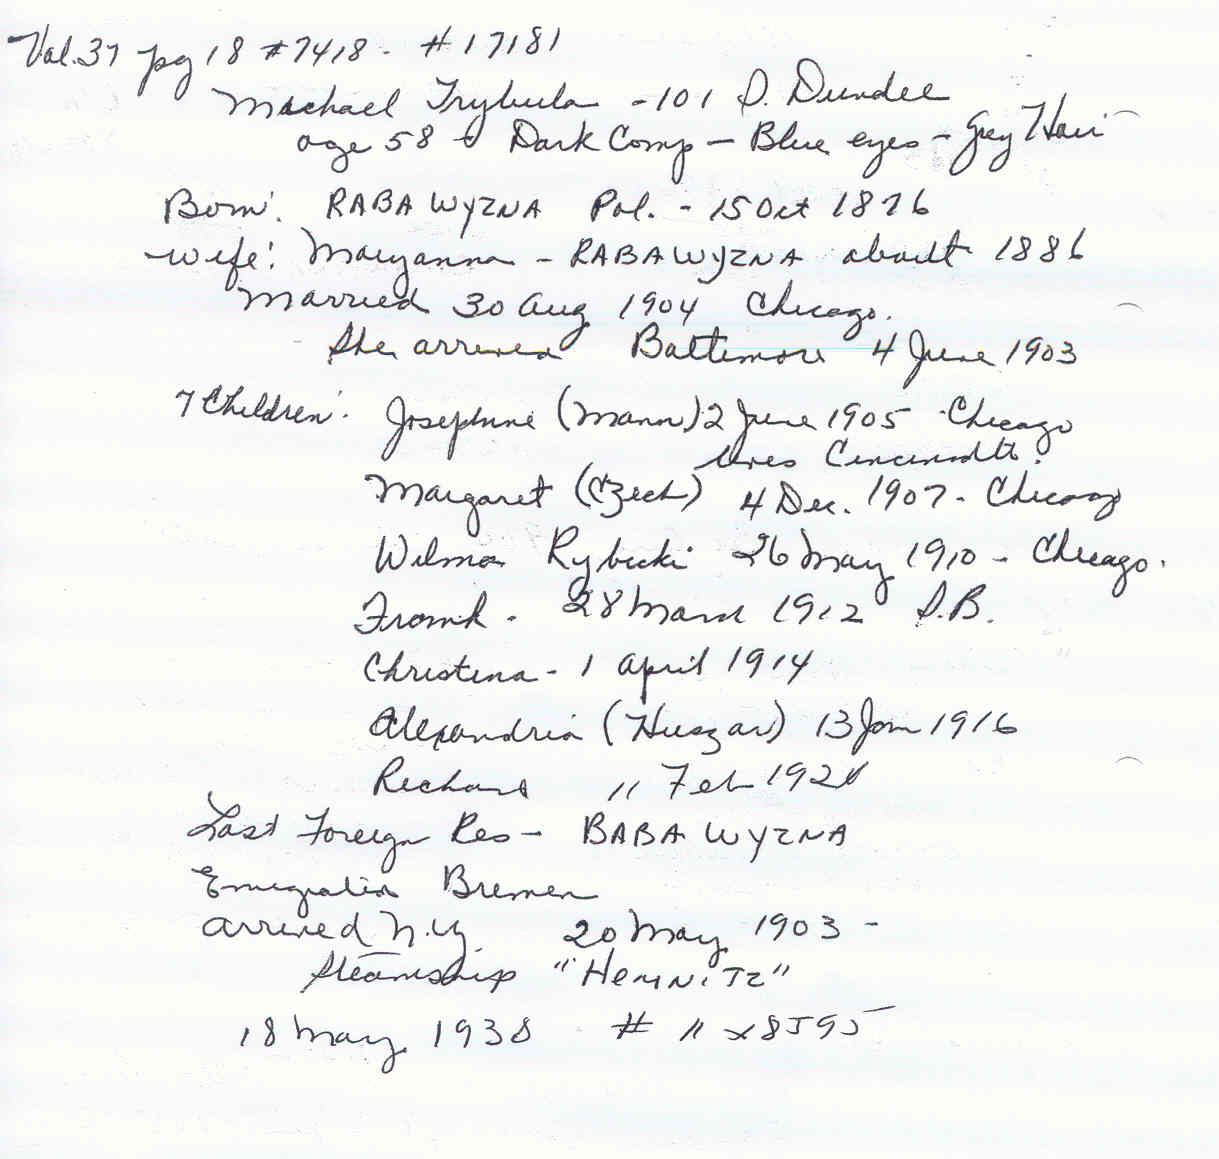 Vol. 37 pg 18 #7418 - #17181
Michael Trybula - 101 S. Dundee
age 58 Dark Comp - Blue eyes - Grey Hair
Born: RABA WYZNA Pol. - 15 Oct 1876
wife: Maryanna - RABA WYZNA about 1886
Married 30 Aug 1904 Chicago.
She arrived Baltimore 4 June 1903
7 Children: Josephine (Mann) 2 June 1905 Chicago
lives Cincinnati.
Margaret (Czech) 4 Dec. 1907 - Chicago
Wilma Rybicki 26 May 1910 - Chicago.
Frank - 28 March 1912 S.B.
Christina - 1 April 1914
Alexandria (Huszar) 13 Jan 1916
Richard 11 Feb
Last Foreign Res - BABA WYZNA
Emigration Bremen
arrived N.Y. 20 May 1903 -
Steamship "HEMNITZ"
18 May 1938 #